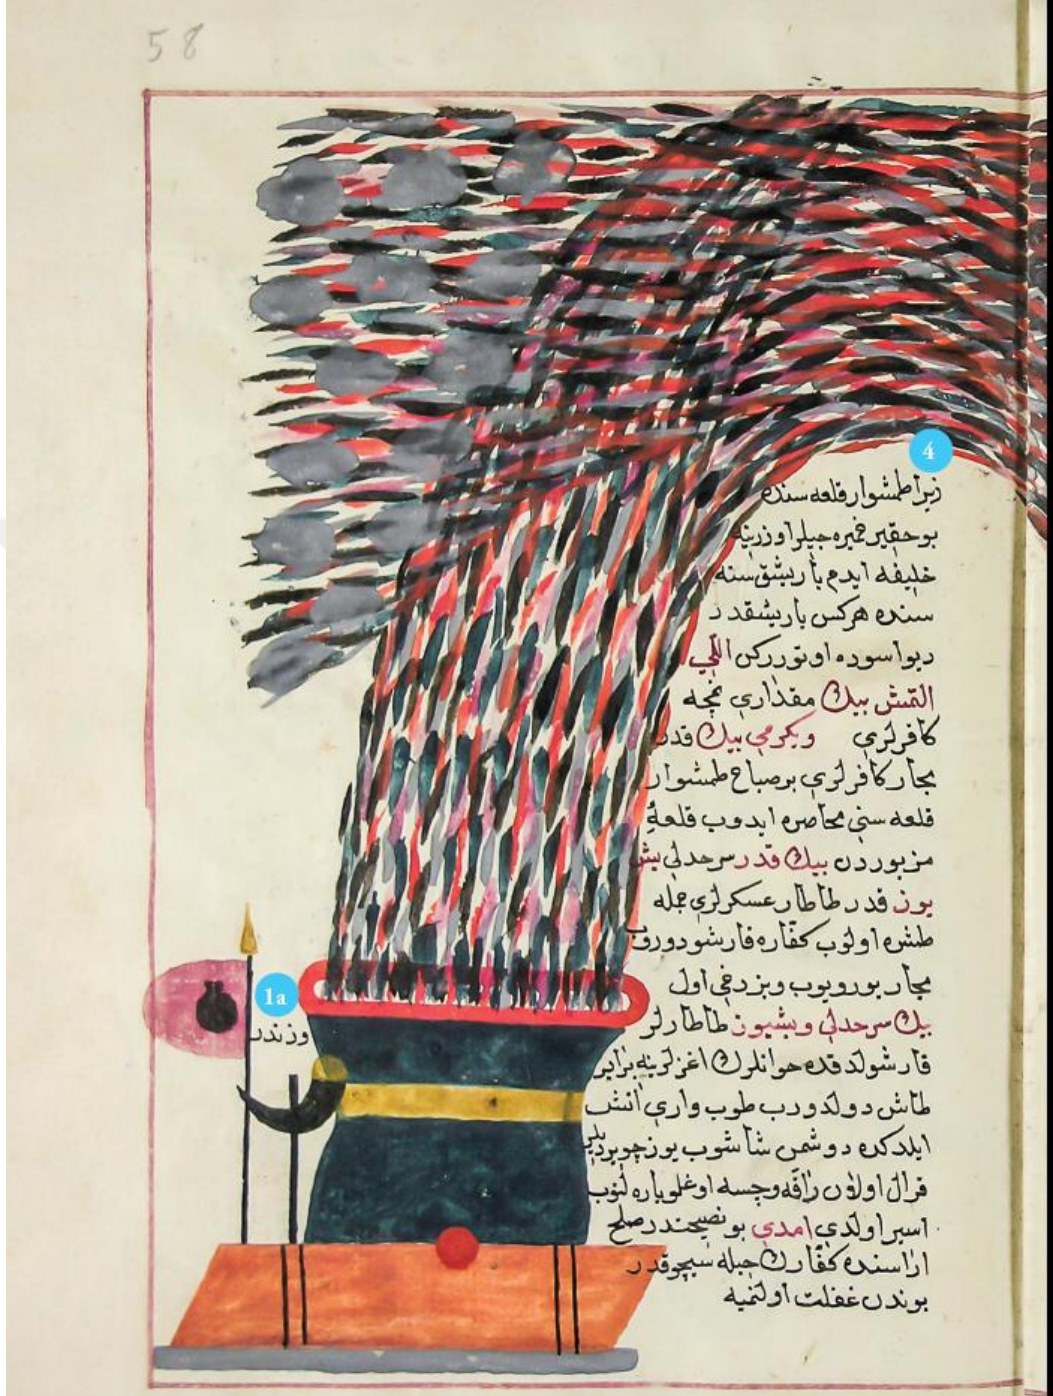 58
4
زيرا طمشوار قلعه سنده
بو حقير خمبره جيلر اوزرينه
خليفه ايدم باريشق سنه
سنده هركس باريشقدر
ديو اسوده اوتورركن اللي
التمش بيك مقداري نمچه
كافرلري ويكرمي بيك قدر
مجار كافرلري بر صباح طمشوار
قلعه سني محاصره ايدوب قلعهٔ
مزبوردن بيك قدر سرحدلي بش
يوز قدر طاطار عسكرلري جمله
طشره اولوب كفاره قارشو دوروب
مجار يورويوب وبزدخي اول
بيك سرحدلي وبشيوز طاطارلر
قارشولدقده حوانلرك اغزلرينه برابر
طاش دولدورب طوب واري اتش
ايلدكده دوشمن شاشوب يوز چويرديلر
قرال اولان راقوچسه اوغلو ياره لنوب
اسير اولدي امدي بو نصيحتدر صلح
اراسنده كفارك حيله سي چوقدر
بوندن غفلت اولنميه
1a
وزندر